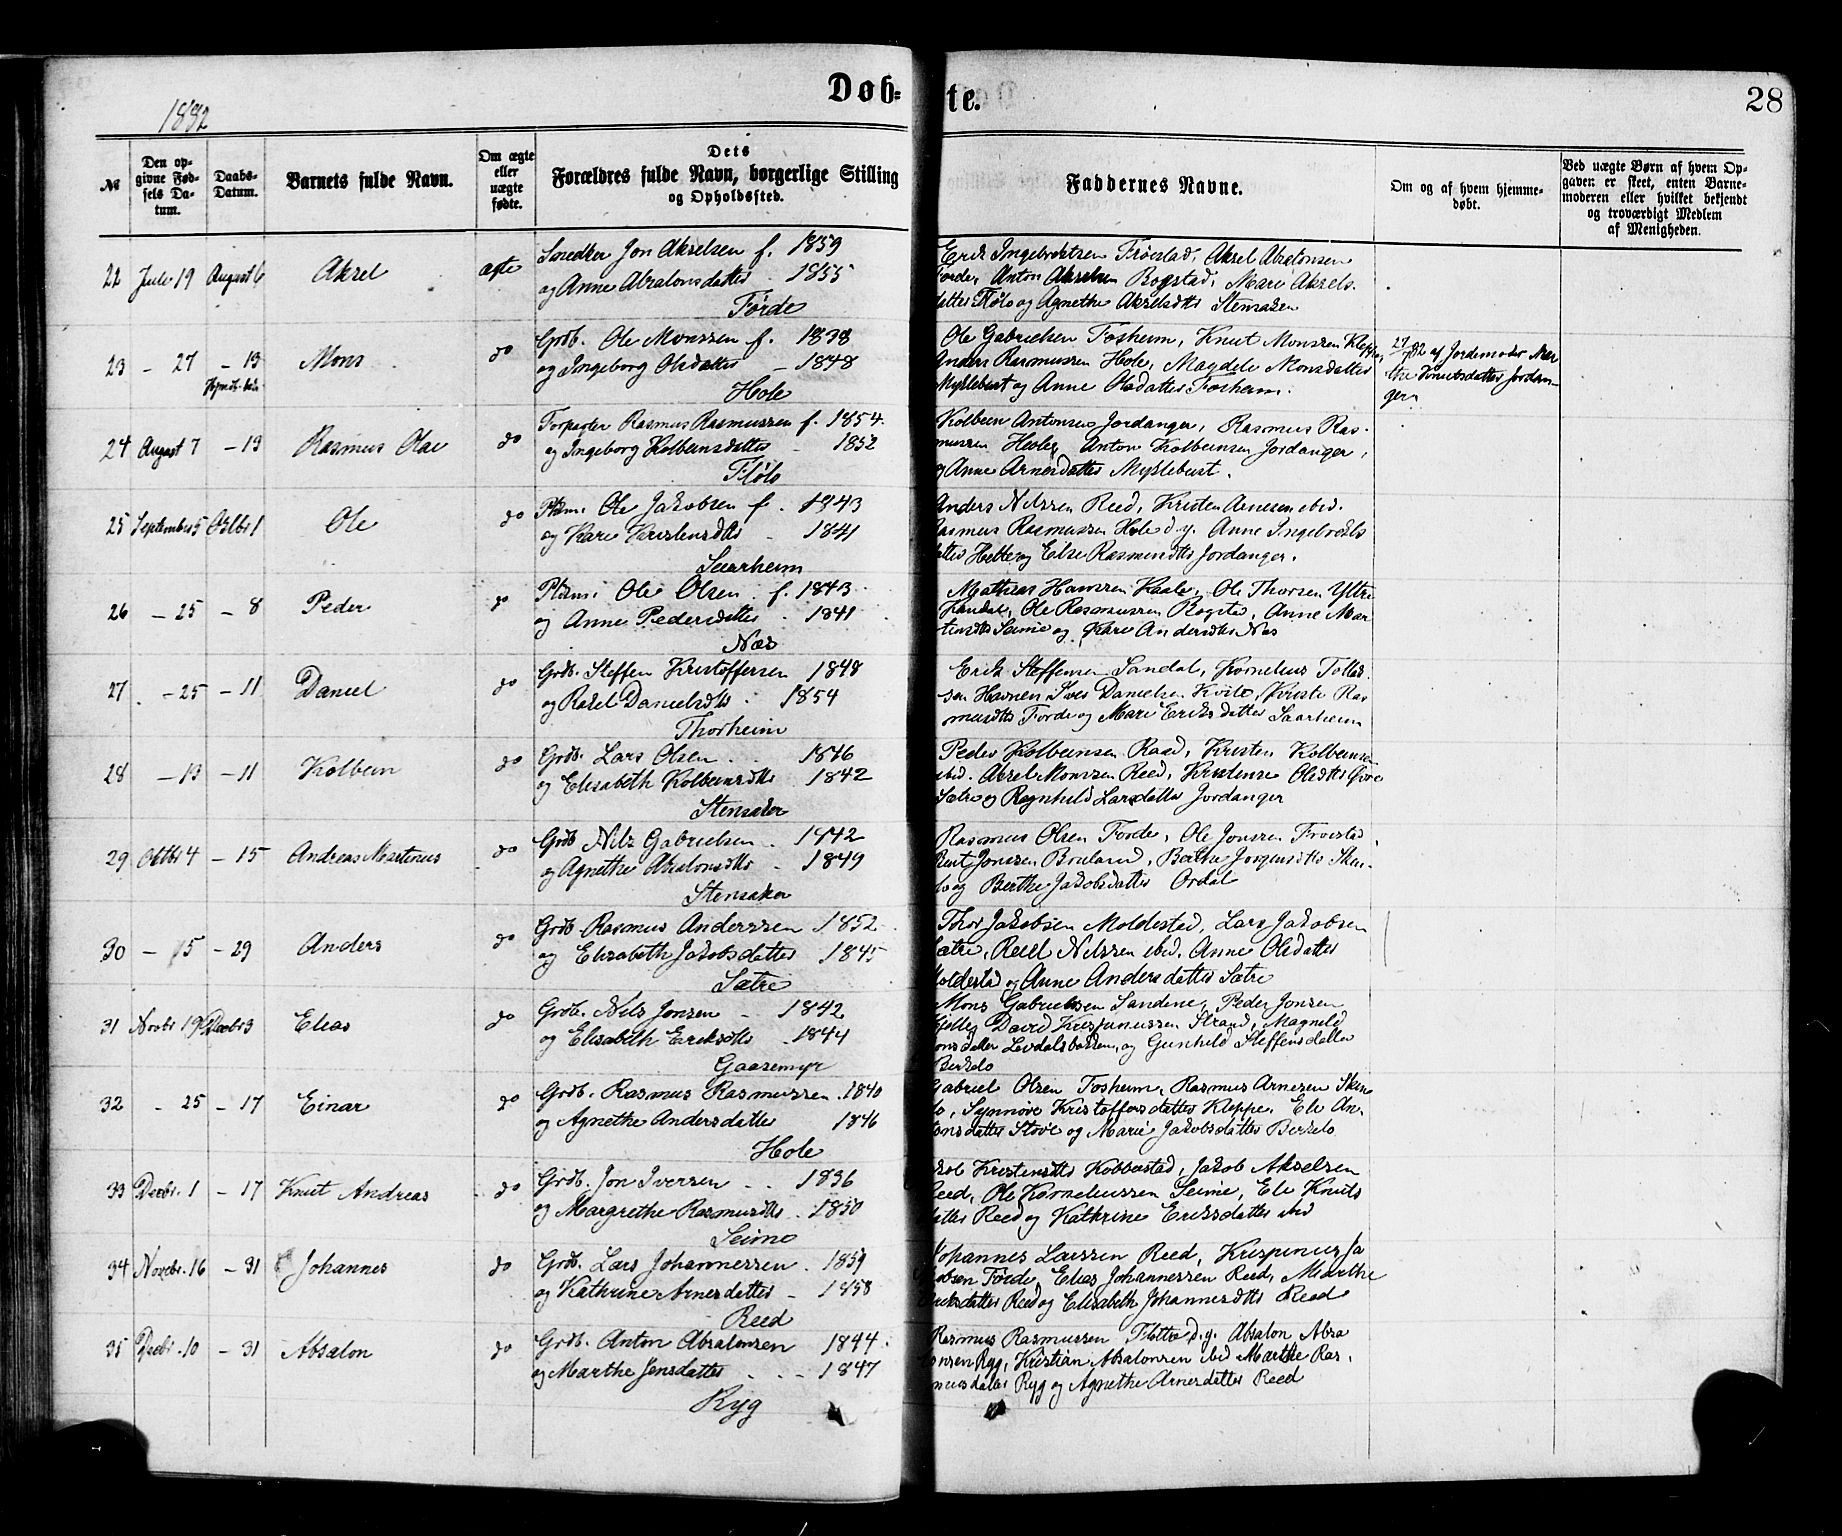 Døb-
te.
28
1882
№
Den op-
givne Fød-
sels Da-
tum.
Daabs-
Datum.
Barnets fulde Navn.
Om ægte
eller
uægte
fødte.
Dets
Forældres fulde Navn, borgerlige Stilling
og Opholdssted.
Faddernes Navne.
Om og af hvem hjemme-
døbt.
Ved uægte Børn af hvem Op-
gaven er skeet, enten Barne-
moderen eller hvilket bekjendt
og troværdigt Medlem
af Menigheden.
22 Juli 19 August 6 Aksel ægte
Snedker Jon Akselsen f. 1859
og Anne Absalonsdatter 1855
Førde
Erik Ingebrektsen Frøestad, Aksel Absalonsen
Førde, Anton Akselsen Rogstad, Mari Aksels
datter Flølo og Agnethe Akselsdtr Stensaker
23 - 27 - 13 Mons do
Grdb. Ole Monssen f. 1838
og Ingeborg Olsdatter - 1848
Hole
Ole Gabrielsen Fosheim, Knut Monssen Kleppe,
Anders Rasmussen Hole, Magdele Monsdatter
Myklebust og Anne Olsdatter Fosheim.
27/7 82 af Jordemoder Mar
the Knutsdatter Jordan-
ger
24 August 7 - 13 Rasmus Olai do
Forpagter Rasmus Rasmussen f. 1854.
og Ingeborg Kolbeinsdatter - 1852
Flølo
Kolbein Antonsen Jordanger, Rasmus Ras-
mussen Anton Kolbeinsen Jordanger,
og Anne Arnesdatter Myklebust.
25 September 5 Oktbr 1 Ole do
Pldm. Ole Jakobsen f. 1843
og Kari Kristensdtr - 1841
Saarheim
Anders Nilssen Reed, Kristen Arnesen ibid.
Rasmus Rasmussen Hole d.y. Anne Ingebrekts
datter og Else Rasmusdtr Jordanger.
26 - 25 - 8 Peder do
Pldm. Ole Olsen f. 1843
og Anne Pedersdatter 1841
Næs
Mathias Hansen Ole Thorsen Ytre
Ole Rasmussen Rogstad, Anne Mar
tinsdtr Seime og Kari Andersdtr Næs
27 - 25 - 11 Daniel do
Grdb. Steffen Kristoffersen 1848
og Rakel Danielsdtr 1854
Thorheim
Erik Steffensen Sandal, Kornelius Tollef
sen Havnen Ives Danielsen Kvile, Kristi Ras
musdtr Førde og Mari Eriksdatter Saarheim
28 - 13 - 11 Kolbein do
Grdb. Lars Olsen 1846
og Elisabeth Kolbeinsdtr 1842
Stensaker
Peder Kolbeinsen Raad, Kristen Kolbeinsen
ibid. Aksel Monsen Reed, Kristense Olsdtr Øvre
Sætre og Ragnhild Larsdatter Jordanger
29 Oktbr 4 - 15 Andreas Martinus do
Grdb Nils Gabrielsen 1842
og Agnethe Absalonsdtr - 1849
Stensaker
Rasmus Olsen Førde, Ole Jonsen Froestad,
Bent Jonsen Bruland, Berthe Jørgensdtr Sken-
lo og Berthe Jakobsdatter Ordal
30 - 15 - 29 Anders do
Grdb. Rasmus Anderssen 1852
og Elisabeth Jakobsdatter 1845
Sætre
Thor Jakobsen Moldestad, Lars Jakobsen
Sætre, Reiel Nilssen ibid. Anne Olsdatter
Moldestad og Anne Andersdatter Sætre
31 Novbr 19 Decbr 3 Elias do
Grdb. Nils Jonsen - 1842
og Elisabeth Eriksdtr - 1844
Gaasemyr
Mons Gabrielsen Sandene, Peder Jonsen
David Krispinussen Strand, Magnild
onsdatter og Gunhild Steffensdatter
Berkelo
32 - 25 - 17 Einar do
Grdb. Rasmus Rasmussen 1840
og Agnethe Andersdatter 1846
Hole
Gabriel Olsen Fosheim, Rasmus Arnesen Sken
lo, Synnøve Kristoffersdatter Kleppe, Eli An-
tonsdatter Støve og Marie Jakobsdatter Berkelo
33 Decbr. 1 - 17 Knut Andreas do
Grdb. Jon Iversen 1836
og Margrethe Rasmusdtr 1850
Seime
Kristensdtr Jakob Akselsen
Reed, Ole Korneliussen Seime, Eli Knuts
datter Reed og Kathrine Eriksdatter ibid
34 Novbr. 16 - 31 Johannes do
Grdb. Lars Johannessen 1859
og Kathrine Arnesdatter - 1858
Reed
Johannes Larssen Reed, Krispinus Ja
kobsen Førde, Elias Johannessen Reed, Marthe
Eriksdatter Reed og Elisabeth Johannesdtr Reed
35 Decbr. 10 - 31 Absalon do
Grdb. Anton Absalonsen 1844
og Marthe Jensdatter 1847
Ryg
Rasmus Rasmussen d.y. Absalon Absa
lonsen Ryg, Kristian Absalonsen ibid Marthe Ras-
musdatter Ryg og Agnethe Arnesdatter Reed